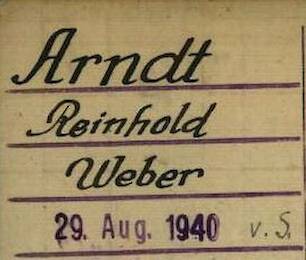 Arndt
Reinhold
Weber
29. Aug. 1940 v. S.